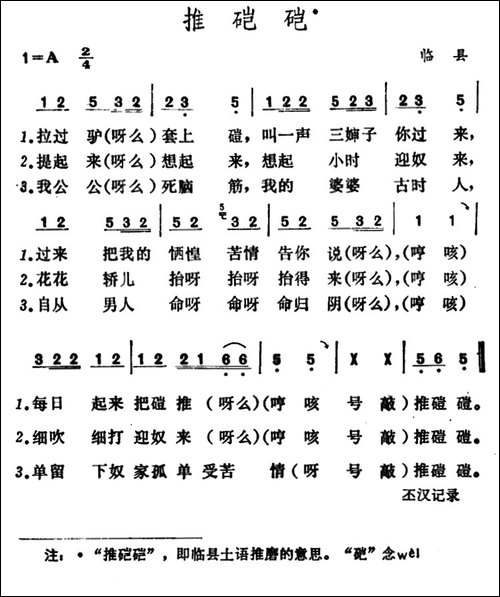 推硙硙•
1=A 2/4 临县
1 2 | 5 3 2 | 2 3 5 | 1 2 2 5 2 3 | 2 3 5 |
1.拉过 驴(呀么)套上 磑，叫一声 三婶子 你过 来，
2.提起 来(呀么)想起 来，想起 小时 迎奴 来，
3.我公 公(呀么)死脑 筋，我的 婆婆 古时 人，
1 2 5 3 2 | 5 2 3 2 | 5 2 5 3 2 | 1 1 |
1.过来 把我的 恓惶 苦情 告你 说(呀么)，(哼 咳)
2.花花 轿儿 抬呀 抬呀 抬得 来(呀么)，(哼 咳)
3.自从 男人 命呀 命呀 命归 阴(呀么)，(哼 咳)
3 2 2 1 2 | 1 2 2 1 6 6 | 5 5 | X X | 5 6 5
1.每日 起来 把磑 推 (呀么)(哼 咳 号 敲)推磑 磑。
2.细吹 细打 迎奴 来 (呀么)(哼 咳 号 敲)推磑 磑。
3.单留 下奴 家孤 单 受苦 情(呀 号 敲)推磑 磑。
丕汉记录
注：•“推硙硙”，即临县土语推磨的意思。“硙”念wèi